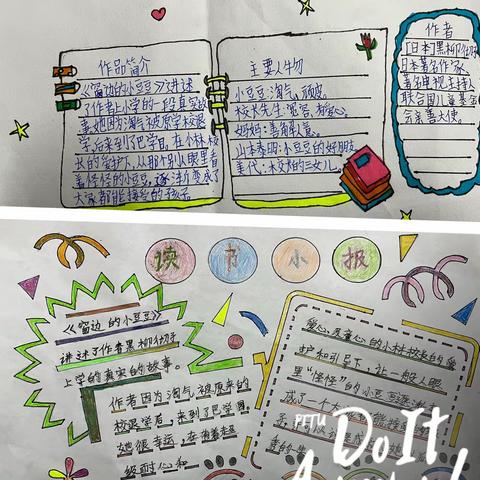 作品简介
《窗边的小豆豆》讲述
了作者上小学的一段真实故
事。她因为淘气被原学校退
学后来到了巴学园。在小林校
长的爱护下,从那个别人眼里看
着怪怪的小豆豆,逐渐变成了
大家都能接受的孩子。
主要人物
小豆豆:淘气、顽皮。
校长先生:宽容、有爱心。
妈妈:善解人意。
山本泰明:小豆豆的好朋友
美代:校长的三女儿。
作者
[日本]黑柳彻
日本著名作家、
著名电视主持人
联合国儿童基金
会亲善大使。
读书小报
《窗边的小豆豆》
讲述了作者黑柳彻子
上学的真实的故事。
作者因为淘气被原来的
校退学后,来到了巴学园。
她很幸运,在有着超
级耐心和
爱心,童心的小林校长的爱
护和引导下,让一般人眼
里“怪怪”的小豆豆逐渐
成了一个
PITU Do It